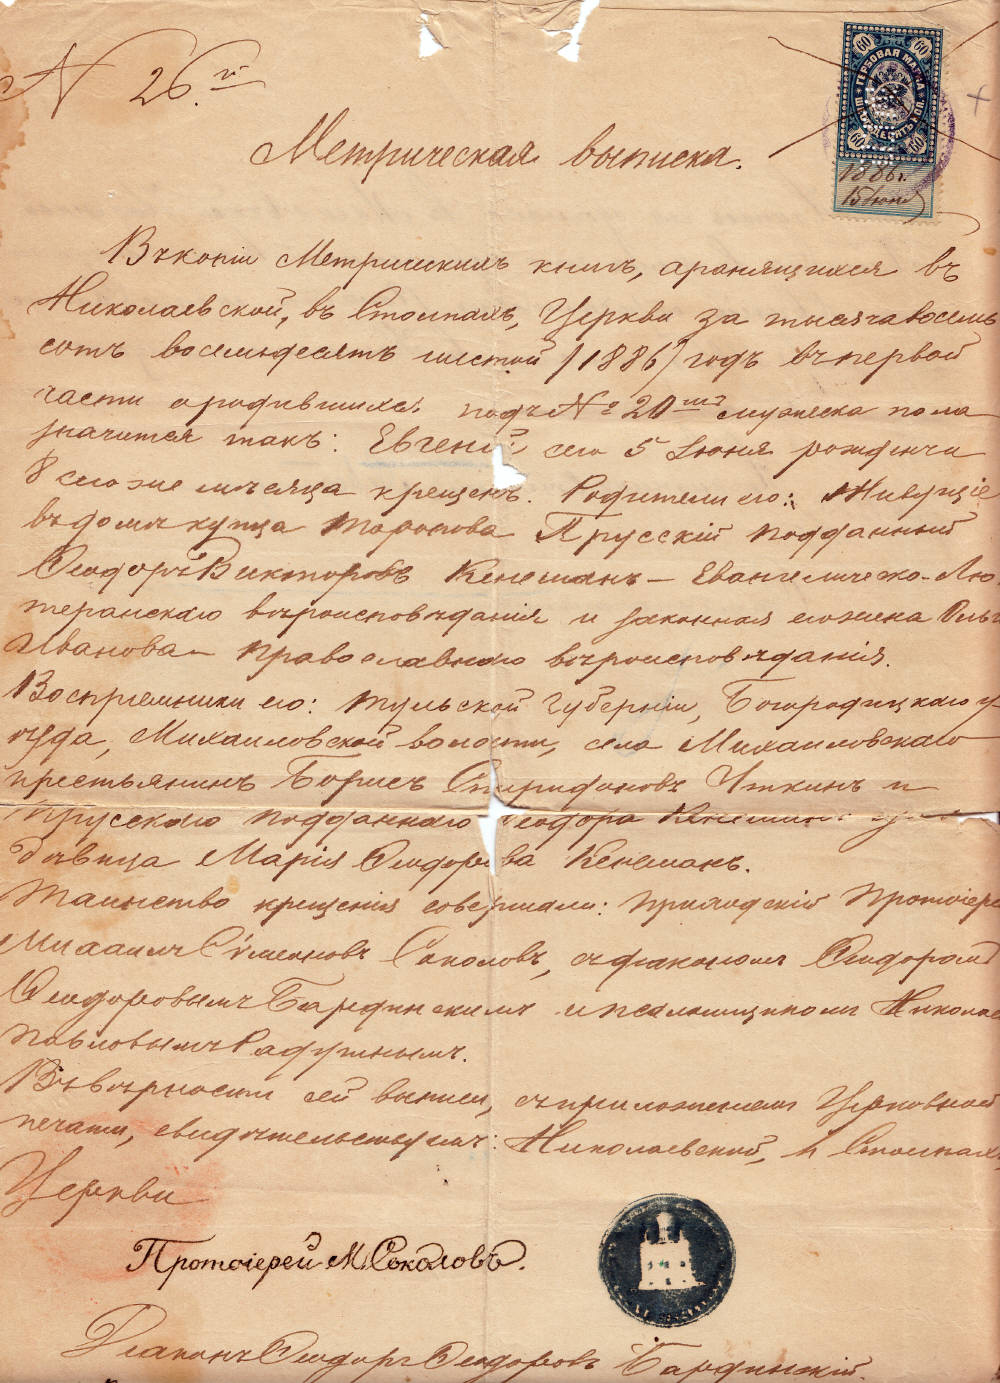 N 26.й
60 60
ГЕРБОВАЯ МАРКА
ШЕСТЬДЕСЯТЪ КОП.
60 60
1886 г.
15 Іюня
Метрическая выписка.
Въ копіи Метрическихъ книгъ, хранящихся въ
Николаевской, въ Столпахъ, Церкви за тысяча восемь
сотъ восемьдесятъ шестой /1886/ годъ въ первой
части о родившихся подъ № 20 мъ мужеска пола
значится такъ: Евгеній, сего 5 Іюня рожденъ и
8 сего же мѣсяца крещенъ. Родители его: Живущіе
въ домѣ купца Торопова Прусскій подданный
Ѳеодоръ Викторовъ Кенеманъ — Евангелическо-Лю-
теранскаго вѣроисповѣданія и законная его жена Ольга
Иванова — православнаго вѣроисповѣданія.
Воспріемники его: Тульской Губерніи, Богородицкаго у-
ѣзда, Михаиловской волости, села Михаиловскаго
крестьянинъ Борисъ Спиридоновъ Уткинъ и
Прусскаго подданнаго Ѳеодора Кенемана
дѣвица Марія Ѳеодорова Кенеманъ.
Таинство крещенія совершали: Приходскій Протоіерей
Михаилъ Симеоновъ Соколовъ, съ діакономъ Ѳеодоромъ
Ѳеодоровымъ Барфинскимъ и псаломщикомъ Николаемъ
Павловымъ Радугинымъ.
Въ вѣрности сей выписи, съ приложеніемъ Церковной
печати, свидѣтельствуемъ: Николаевской, въ Столпахъ
Церкви
Протоіерей М. Соколовъ.
Діаконъ Ѳеодоръ Ѳеодоровъ Барфинскій.